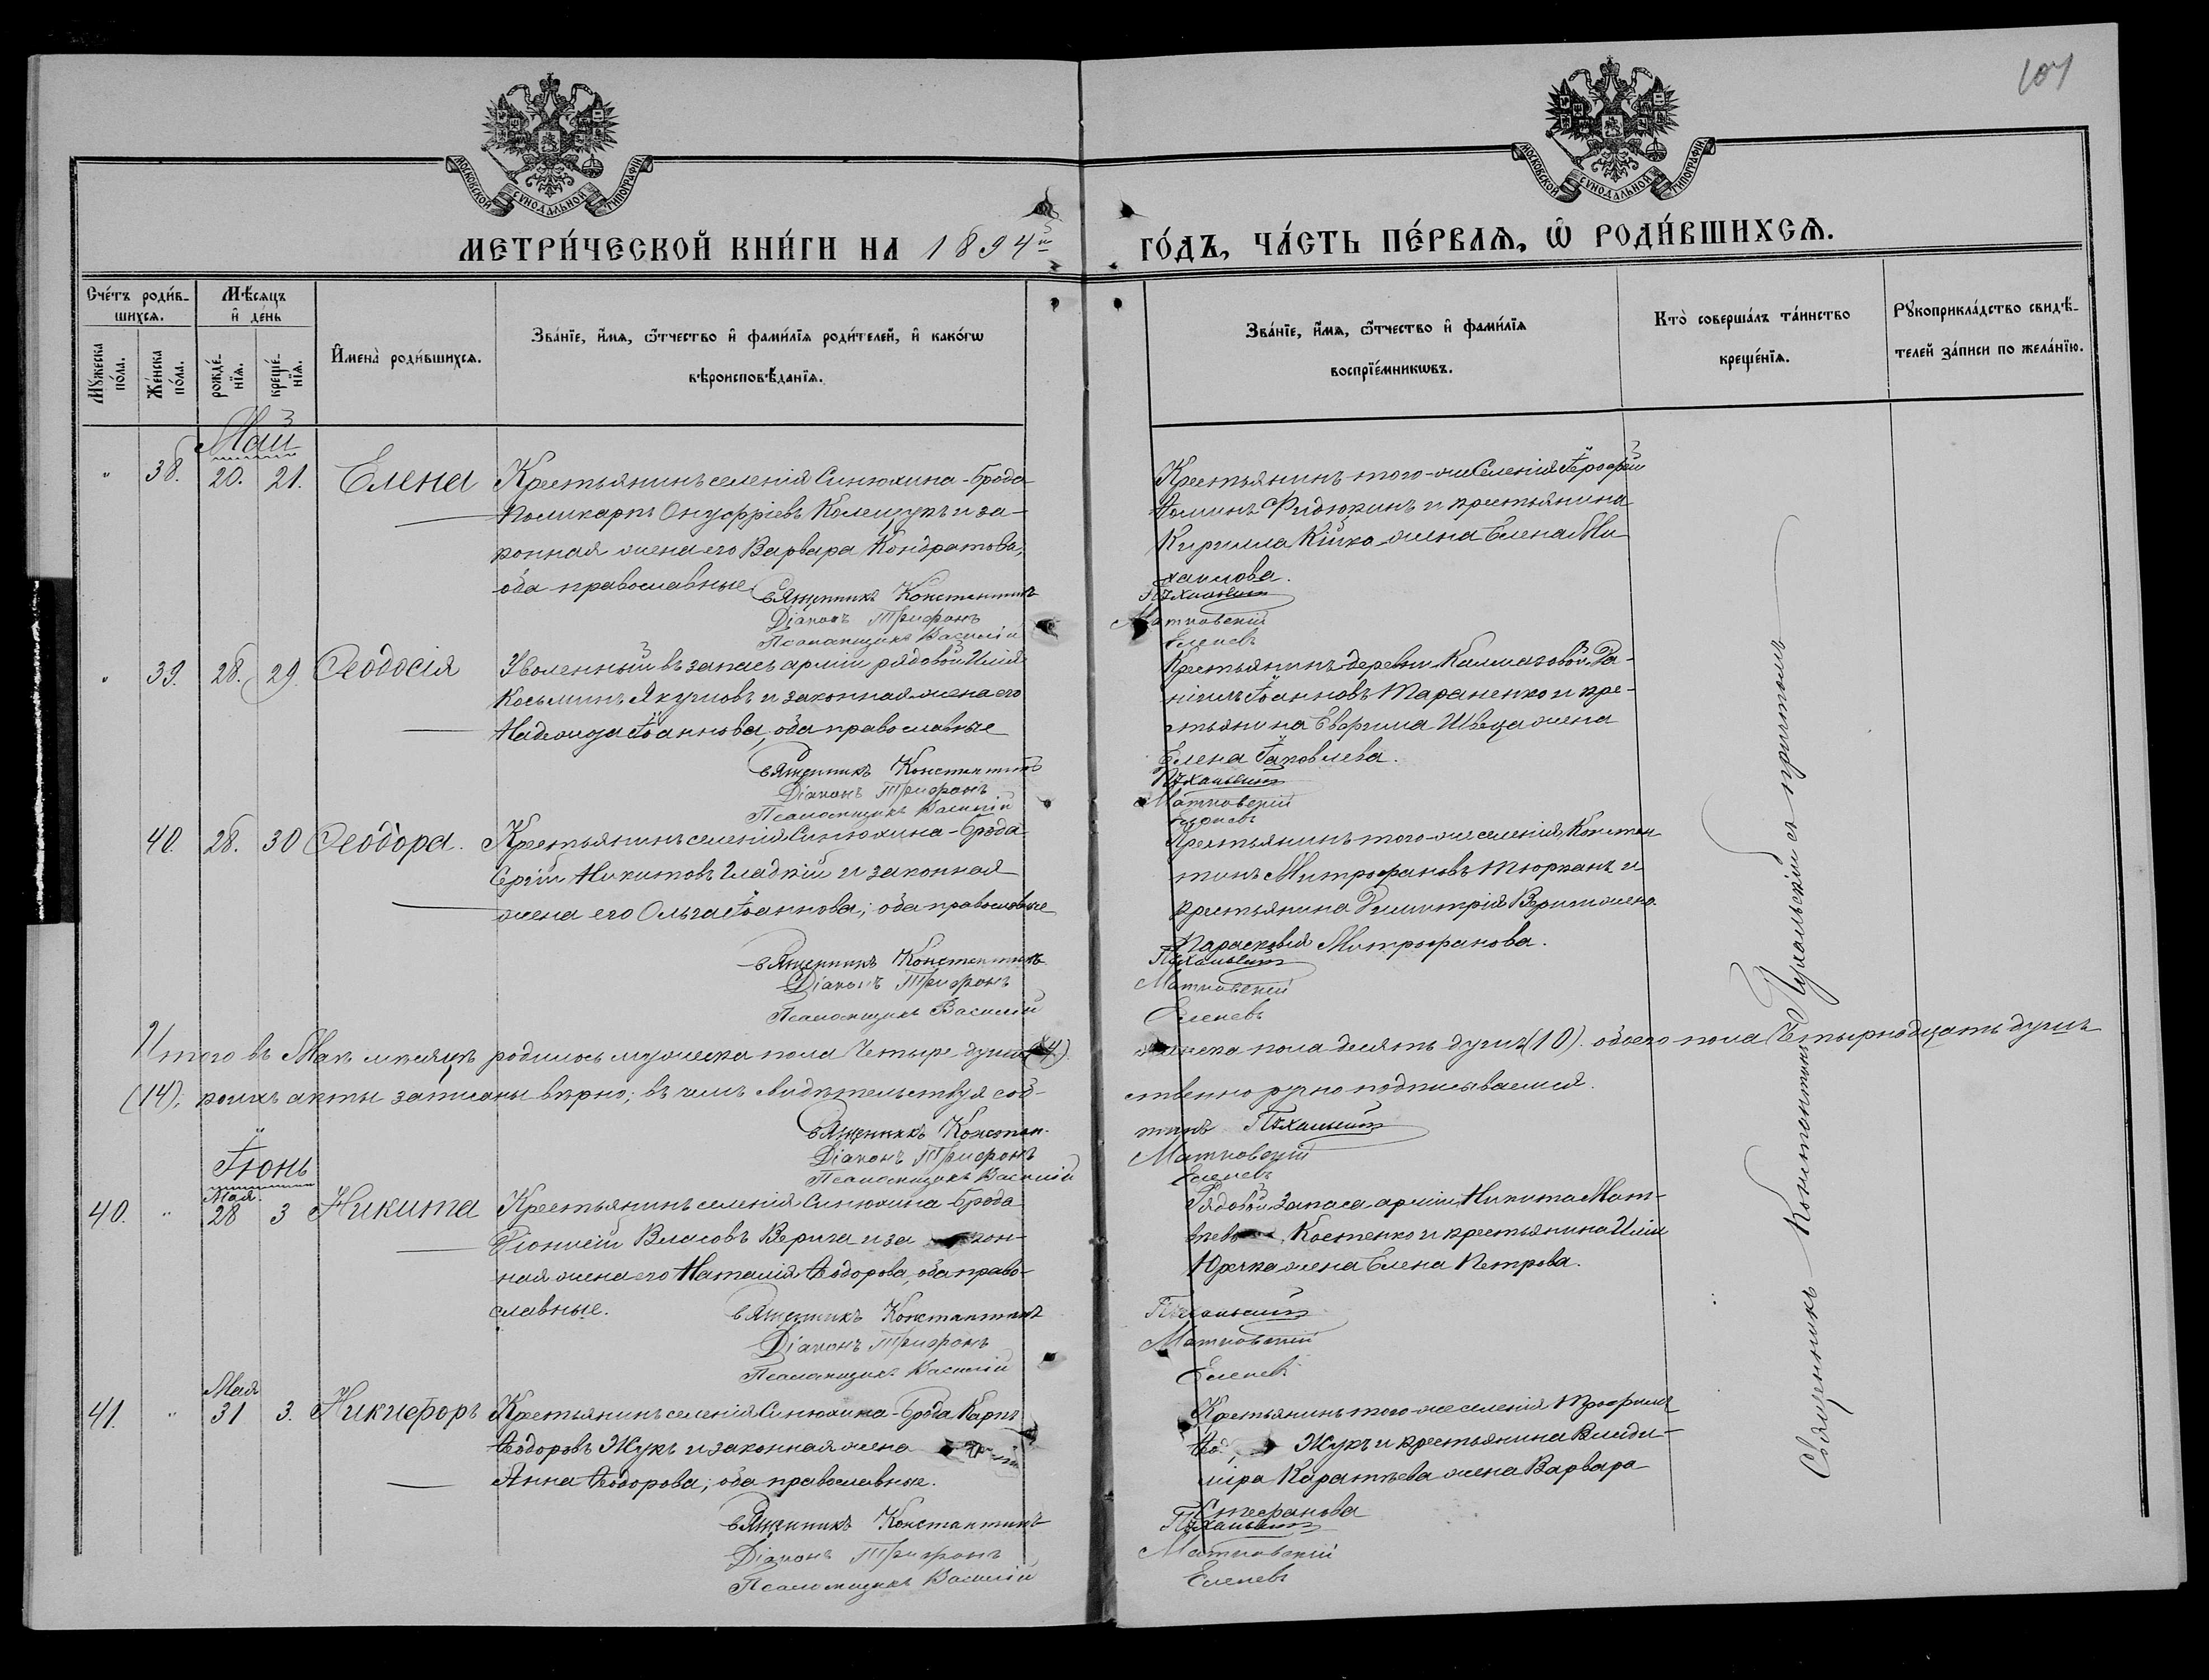 107
МОСКОВСКОЙ СѴНОДАЛЬНОЙ ТИПОГРАФІИ
МОСКОВСКОЙ СѴНОДАЛЬНОЙ ТИПОГРАФІИ
МЕТРИ́ЧЕСКОЙ КНИ́ГИ НА 1894й
ГО́ДЪ, ЧА́СТЬ ПЕ́РВАѦ, Ѡ҆ РОДИ́ВШИХСѦ.
Сче́тъ роди́в-
шихсѧ.
Мꙋ́жеска по́ла.
Же́нска по́ла.
Мѣ́сѧцъ
и҆ де́нь
рожде́нїѧ.
креще́нїѧ.
И҆мена̀ роди́вшихсѧ.
Зва́нїе, и҆́мѧ, ѻ҆́тчество и҆ фами́лїѧ роди́телей, и҆ како́гѡ
вѣроисповѣ́данїѧ.
Зва́нїе, и҆́мѧ, ѻ҆́тчество и҆ фами́лїѧ
воспрїе́мникѡвъ.
Кто̀ соверша́лъ та́инство
креще́нїѧ.
Рꙋкоприкла́дство свидѣ́-
телей за́писи по жела́нїю.
Май
" 38. 20. 21. Елена
Крестьянинъ селенія Синюхина-Брода
Поликарпъ Онуфріевъ Колещукъ и за-
конная жена его Варвара Кондратова,
оба православные
Священникъ Константинъ
Діаконъ Трифонъ
Псаломщикъ Василій
Крестьянинъ того-же селенія Іерофей
Ѳоминъ Фидюкинъ и крестьянина
Кирилла Кійко жена Елена Ми-
хаилова.
Пѣхальскій
Матковскій
Еленевъ
" 39. 28. 29. Ѳеодосія
Уволенный въ запасъ арміи рядовой Илія
Косьминъ Якуповъ и законная жена его
Надежда Іоаннова, оба православные
Священникъ Константинъ
Діаконъ Трифонъ
Псаломщикъ Василій
Крестьянинъ деревни Калмазовой Да-
ніилъ Іоанновъ Тараненко и кре-
стьянина Евфима Швеца жена
Елена Іаковлева.
Пѣхальскій
Матковскій
Еленевъ
40. 28. 30 Ѳеодора.
Крестьянинъ селенія Синюхина-Брода
Сергій Никитовъ Гладкій и законная
жена его Ольга Іоаннова; оба православные
Священникъ Константинъ
Діаконъ Трифонъ
Псаломщикъ Василій
Крестьянинъ того-же селенія Констан-
тинъ Митрофановъ Тюрканъ и
крестьянина Димитрія Вериги жена
Параскевія Митрофанова.
Пѣхальскій
Матковскій
Еленевъ
Итого въ Маѣ мѣсяцѣ родилось мужеска пола четыре души (4). женска пола десять душъ (10). обоего пола четырнадцать душъ
(14); коихъ акты записаны вѣрно; въ чемъ свидѣтельствуя соб- ственно ручно подписываемся.
Священникъ Констан- тинъ Пѣхальскій
Діаконъ Трифонъ Матковскій
Псаломщикъ Василій Еленевъ
Іюнь
Мая.
40. " 28 3 Никита
Крестьянинъ селенія Синюхина-Брода
Діонисій Власовъ Верига и за кон-
ная жена его Наталія Ѳеодорова, оба право-
славные.
Священникъ Константинъ
Діаконъ Трифонъ
Псаломщикъ Василій
Рядовой запаса арміи Никита Мат-
ѳеевъ Костенко и крестьянина Иліи
Юрчка жена Елена Петрова.
Пѣхальскій
Матковскій
Еленевъ
Мая
41. " 31 3. Никифоръ
Крестьянинъ селенія Синюхина-Брода Карпъ
Ѳеодоровъ Жукъ и законная жена
Анна Ѳеодорова; оба православные.
Священникъ Константинъ
Діаконъ Трифонъ
Псаломщикъ Василій
Крестьянинъ того-же селенія Трофимъ
Ѳеод Жукъ и крестьянина Влади-
міра Каратѣева жена Варвара
Стефанова
Пѣхальскій
Матковскій
Еленевъ
Священникъ Константинъ Пѣхальскій съ причтомъ